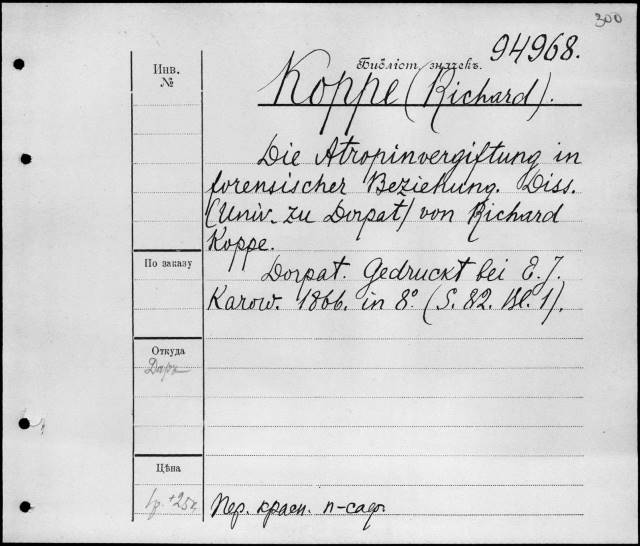 300
94968.
Инв.
№
Библіот. значекъ.
Koppe (Richard).
Die Atropinvergiftung in
forensischer Beziehung. Diss.
(Univ. zu Dorpat) von Richard
Koppe.
По заказу
Dorpat. Gedruckt bei E. J.
Karow. 1866. in 8° (S. 82. Bl. 1).
Откуда
Даръ
Цѣна
+25к.
Пер. красн. п-саф.